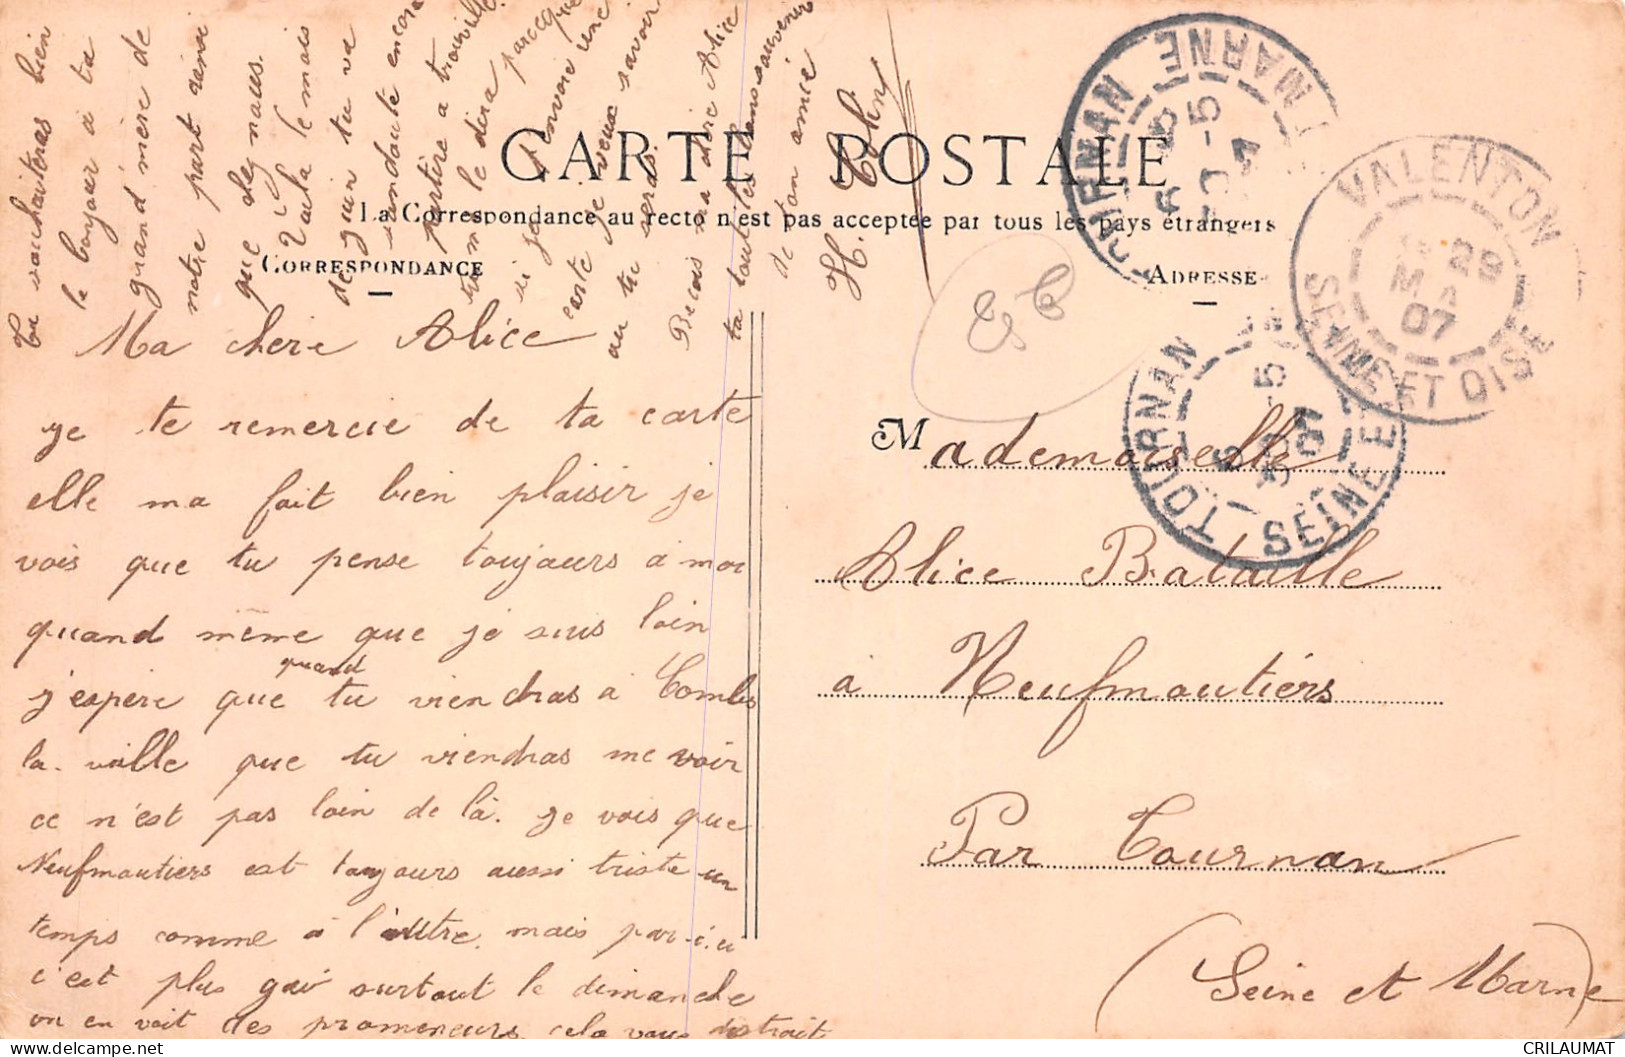 CARTE POSTALE
La Correspondance au recto n'est pas acceptée par tous les pays étrangers
CORRESPONDANCE
ADRESSE
Ma chere Alice
je te remercie de ta carte
elle ma fait bien plaisir je
vois que tu pense toujours a moi
quand même que je suis loin
quand
j'espère que tu viendras a Combs
la ville que tu viendras me voir
ce n'est pas loin de là. je vois que
Neufmoutiers est toujours aussi triste un
temps comme à l'autre. mais par-ici
c'est plus gai surtout le dimanche
on en voit des promeneurs, cela vous distrait
Tu souhaiteras bien
le bonjour a ta
grand'mère de
notre part ainsi
que de nous.
Paula le mais
de juin tu va
sandoute encore
partire a trouville
tu me le dira parceque
si je t'envoie une
carte je veux savoir
au tu seras.
Recois ma chère Alice
ta tout les bons souvenir
de ton amie
H.
Mademoiselle
Alice Bataille
à Neufmoutiers
Par Tournan
(Seine et Marne)
TOURNAN
MARNE
VALENTON
29
MA
07
SEINE ET OISE
TOURNAN
SEINE ET
CRILAUMAT